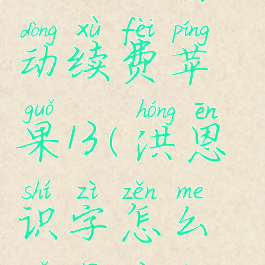 dòng xù fèi píng
动续费苹
guǒ hóng ēn
果13(洪恩
shí zì zěn me
识字怎么